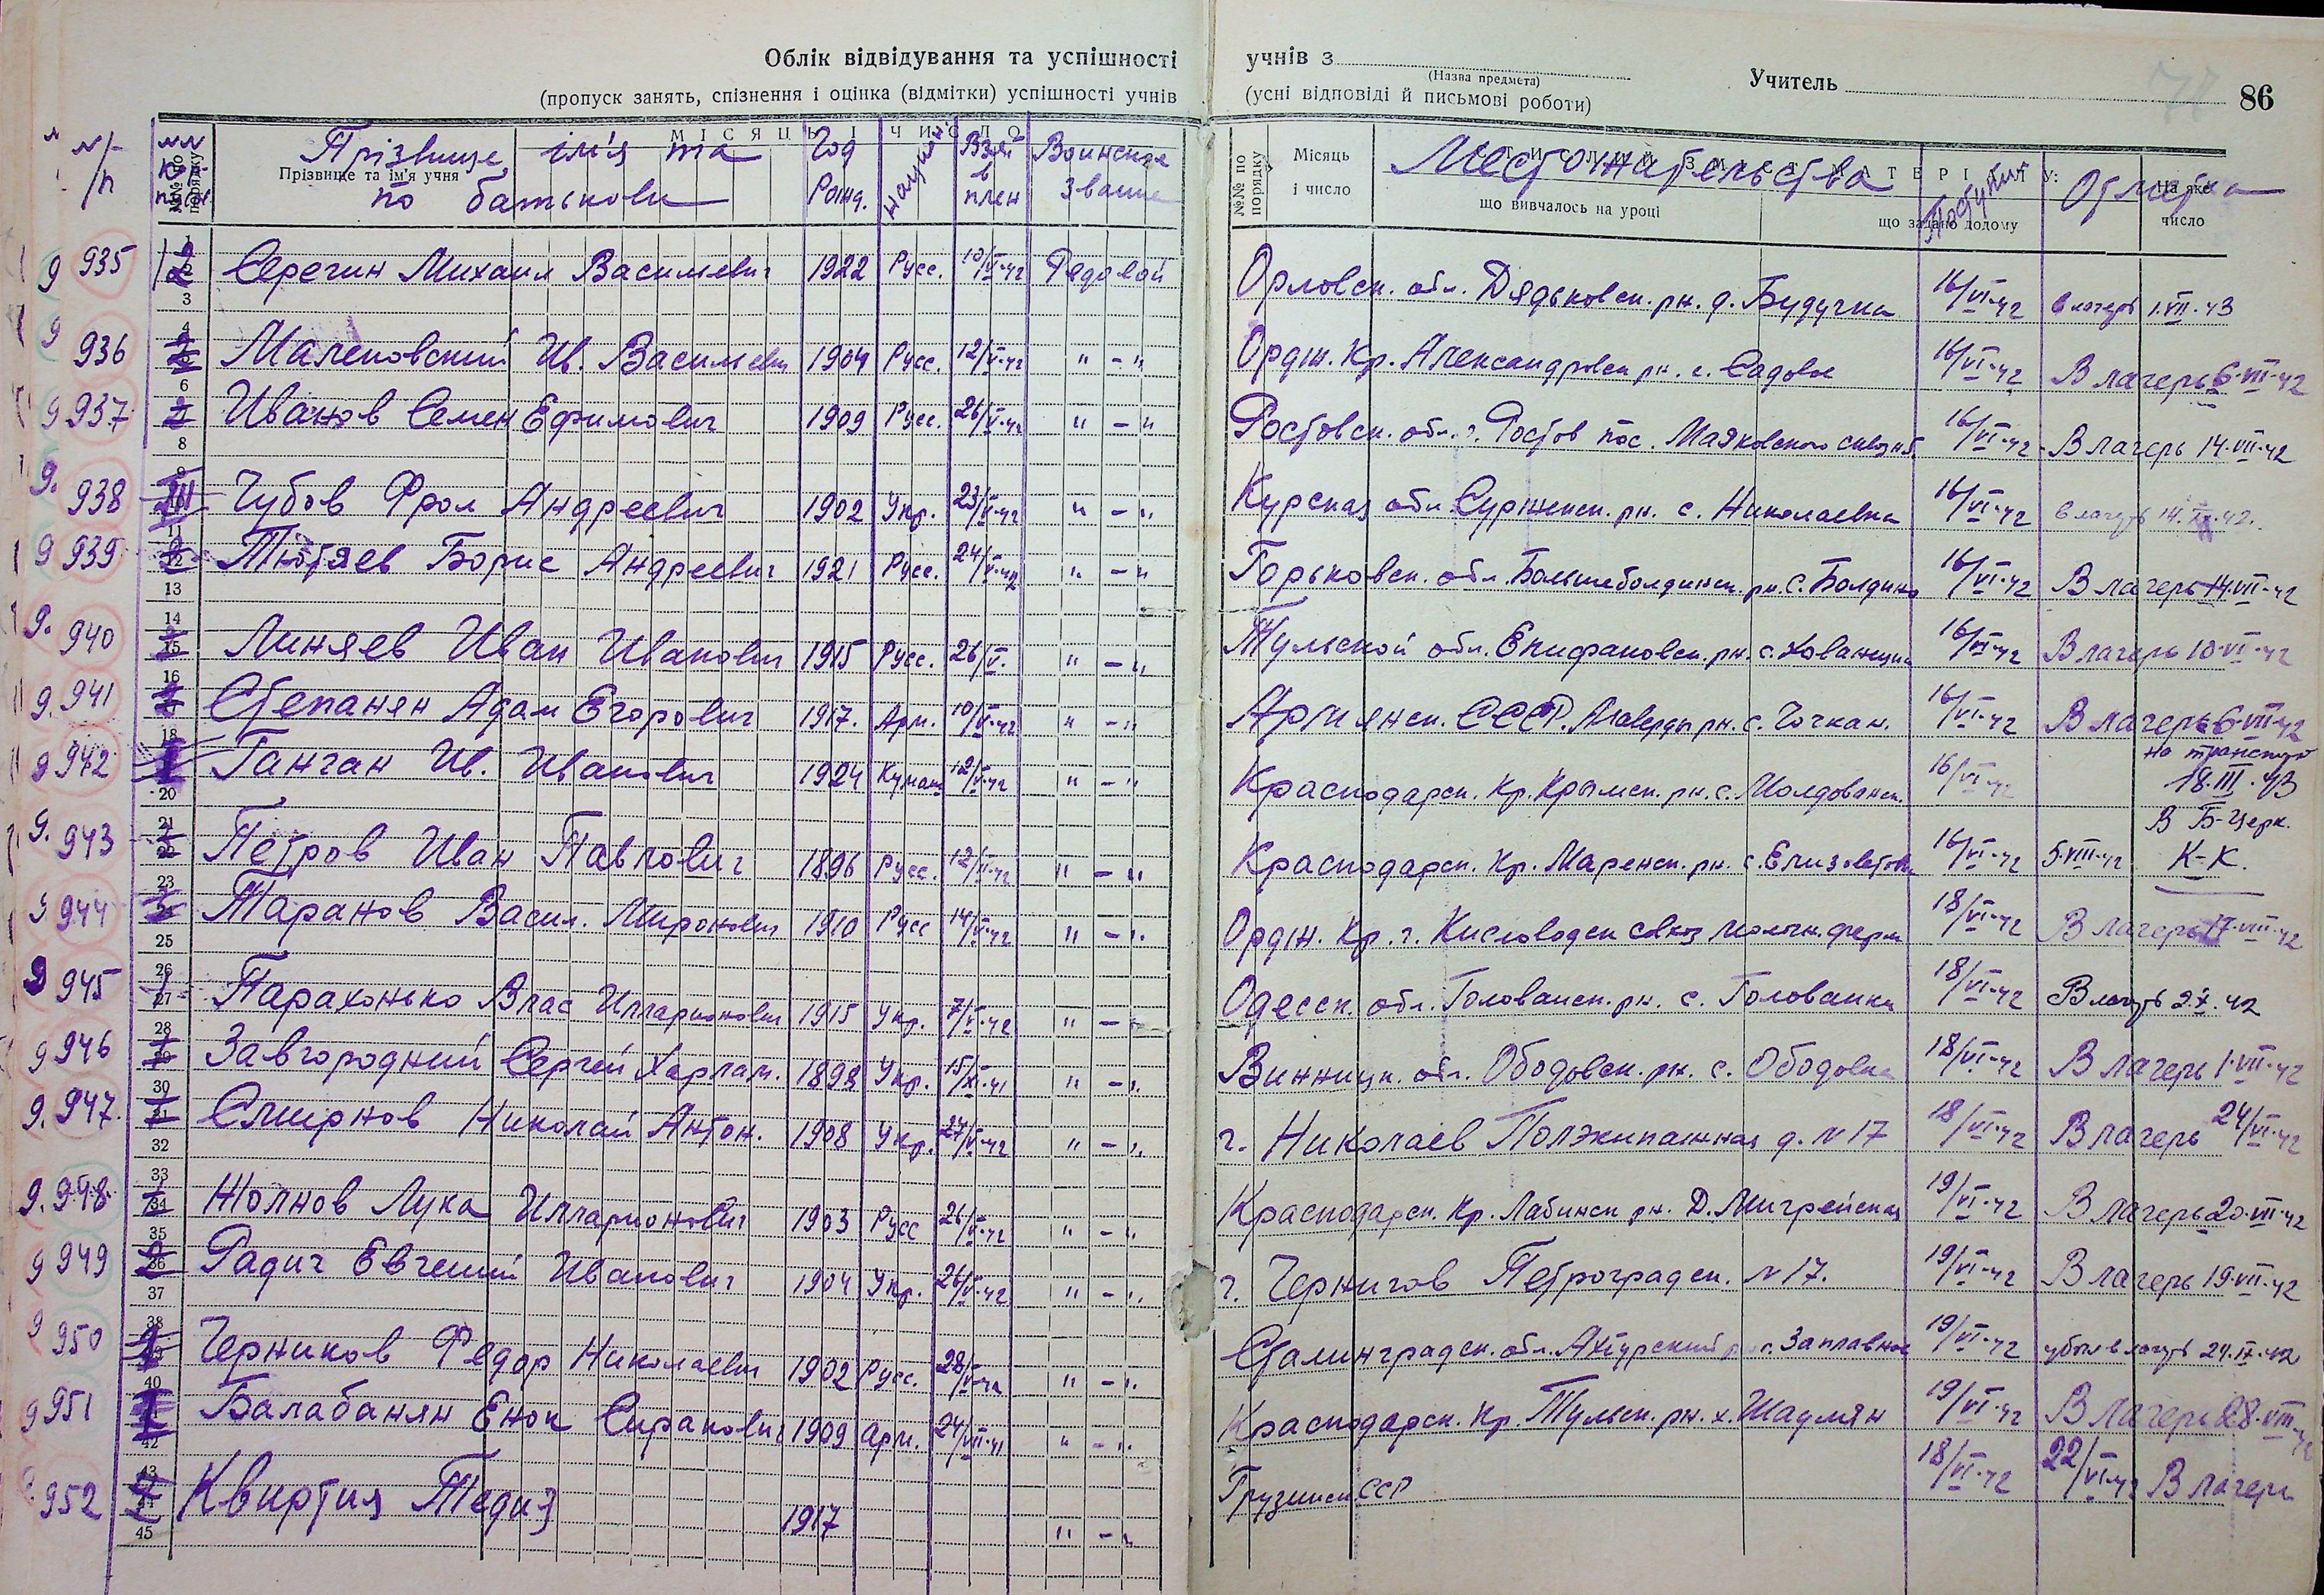 Облік відвідування та успішності учнів з
(Назва предмета)
Учитель
86
(пропуск занять, спізнення і оцінка (відмітки) успішності учнів (усні відповіді й письмові роботи)
МІСЯЦЬ І ЧИСЛО
№№ по порядку
Прізвище та ім'я учня
Прізвище, ім'я та по батькови
Год рожд.
Взят в плен
Воинское звание
№№ по порядку
Місяць і число
Местожительства
що вивчалось на уроці
що задано додому
Поступил
Отметка
На яке число
9 935 Серегин Михаил Василевич 1922 Русс. 10/VI-42 Рядовой Орловск. обл. Дядьковск. рн. д. 16/VI-42 в лагерь 1.VII.43
9 936 Ив. Василевич 1904 Русс. 12/V-42 " - " Ордж. Кр. Александровск рн. с. Садовое 16/VI-42 В лагерь 6.VIII.42
9 937 Иванов Семен Ефимович 1909 Русс. 26/V-42 " - " Ростовск. обл. г. Ростов пос. Маяковского 16/VI-42 В лагерь 14.VII.42
9. 938 Чубов Фрол Андреевич 1902 Укр. 23/V-42 " - " Курская обл. рн. с. Николаевка 16/VI-42 в лагерь
9 939 Тютяев Борис Андреевич 1921 Русс. 24/V-42 " - " Горьковск. обл. Большеболдинск. рн. с. Болдино 16/VI-42 В лагерь 14.VII-42
9. 940 Линяев Иван Иванович 1915 Русс. 26/V. " - " Тульской обл. Епифановск. рн. с. 16/VI-42 В лагерь 10.VI-42
9. 941 Степанян Адам Егорович 1917. Арм. 10/V-42 " - " Армянск. ССР. Алаверды рн. с. Чочкан. 16/VI-42 В лагерь 6.VII.42
9 942 Ганган Ив. Иванович 1924 12/V-42 " - " Краснодарск. Кр. Крымск. рн. с. Молдованск. 16/VI-42 на транспорт 18.III.43
9. 943 Петров Иван Павлович 1896 Русс. 12/VI-42 " - " Краснодарск. Кр. Маренск. рн. с. 16/VI-42 5.VIII-42 В Б-Церк. К-К.
9 944 Таранов Васил. Миронович 1910 Русс 14/V-42 " - " Ордж. Кр. г. Кисловодск 18/VI-42 В лагерь 17.VIII-42
9 945 Парахонько Влас Илларионович 1915 Укр. 7/V-42 " - " Одесск. обл. рн. с. 18/VI-42 В лагерь 9.X.42
9 946 Завгородний Сергей Харлам. 1898 Укр. 15/XI-41 " - " Винницк. обл. Ободовск. рн. с. Ободовка 18/VI-42 В лагерь 1.VII-42
9. 947. Смирнов Николай Антон. 1908 Укр. 27/V-42 " - " г. Николаев Полэкипажная д. N 17 18/VI-42 В лагерь 24/VI-42
9. 948. Жолнов Лука Илларионович 1903 Русс 26/V-42 " - " Краснодарск. Кр. Лабинск рн. 19/VI-42 В лагерь 20.VII.42
9 949 Радич Евгений Иванович 1904 Укр. 26/V-42 " - " г. Чернигов Петроградск. N 17. 19/VI-42 В лагерь 19.VII-42
9 950 Черников Федор Николаевич 1902 Русс. 28/V-42 " - " Сталинградск. обл. с. Заплавное 19/VI-42 убыл в лагерь 24.IX.42
9 951 Балабанян Енок Сиракович 1909 Арм. 24/VII-41 " - " Краснодарск. Кр. Тульск. рн. х. Шаумян 19/VI-42 В лагерь 28.VIII-42
952 Квиртия Тедиз 1917 " - " Грузинск ССР 18/VI-42 22/VI-42 В лагерь